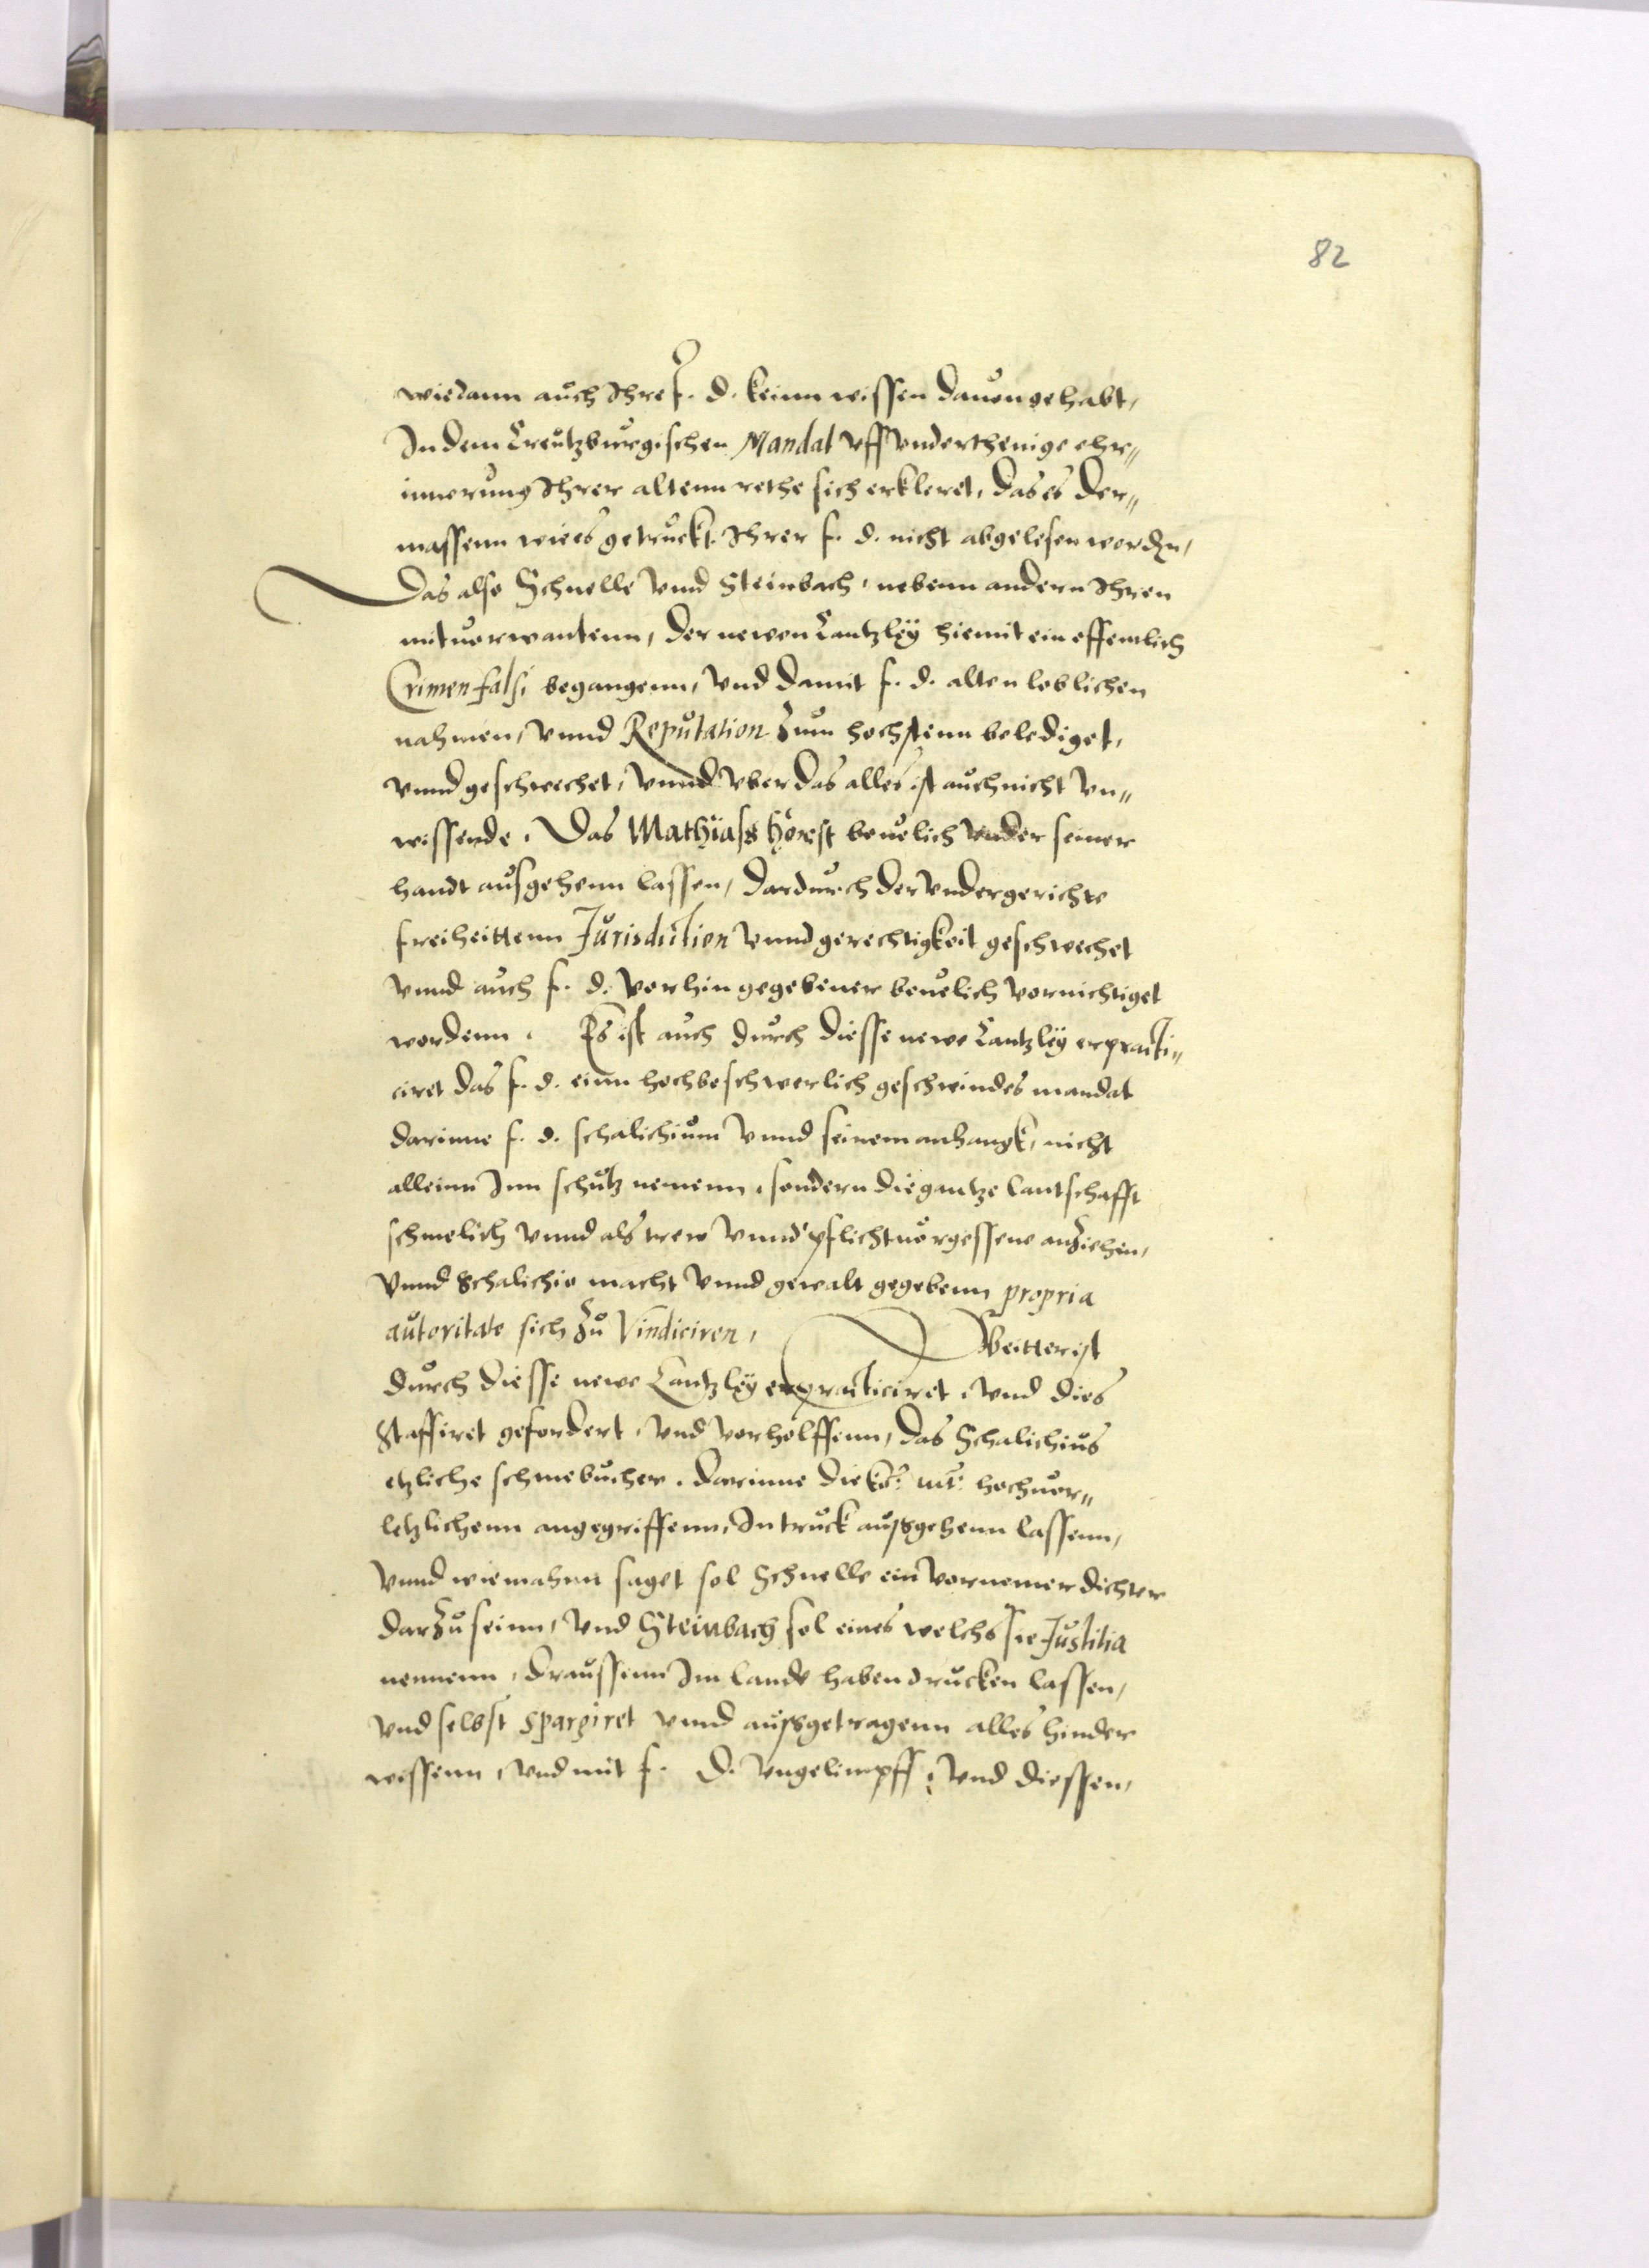 82
wiedann auch Ihre f. d. keinn wissen dauon gehabt,
In dem Creutzburgischen Mandat vff vnderthenige ehr„
innerung Ihrer altenn rethe sich erkleret, das es der„
massenn wie es getruckt Ihrer f. d. nicht abgelesen worden,
Das also Schnelle vnnd Steinbach, nebenn andern Ihren
mituorwantenn, der newen Cantzley hiemit ein offentlich
Crimen falsi begangenn, vnd damit f. d. alten loblichen
nahmen, vnnd Reputation zum hochstenn belediget,
vnnd geschwechet, vnnd vber das alles ist auch nicht vn„
wissende. Das Mathiass Horst beuelich vnder seiner
handt ausgehenn lassen, dardurch der vndergerichte
freiheittenn Jurisdiction vnnd gerechtigkeit geschwechet
vnnd auch f. d. vorhin gegebener beuelich vornichtiget
wordenn. Es ist auch durch diesse newe Cantzley erpracti„
ciret das f. d. einn hochbeschwerlich geschwindes mandat
darinne f. d. schalichium vnnd seinem anhangk, nicht
alleinn Inn schutz nemenn, sondern die gantze lantschafft
schmelich vnnd als trew vnnd pflichtuorgessene anziehen,
vnnd Schalichio macht vnnd gewalt gegebenn propria
autoritate sich zu Vindiciren, Weitter ist
durch diesse newe Cantzley erpracticiret, vnd dies
Staffiret gefordert, vnd vorholffenn, das Schalichius
etzliche schmebucher, darinne die ko: mt: hochuor„
letzlichenn angegriffenn, In truck aussgehenn lassenn,
vnnd wie mahnn saget sol Schnelle ein vornemer dichter
darzu seinn, vnd Steinbach sol eines welchs sie Justitia
nennenn, draussenn Im lande haben drucken lassen,
vnd selbst spargiret vnnd aussgetragenn alles hinder
wissenn, vnd mit f. d. vngelimpff, vnd diessen,